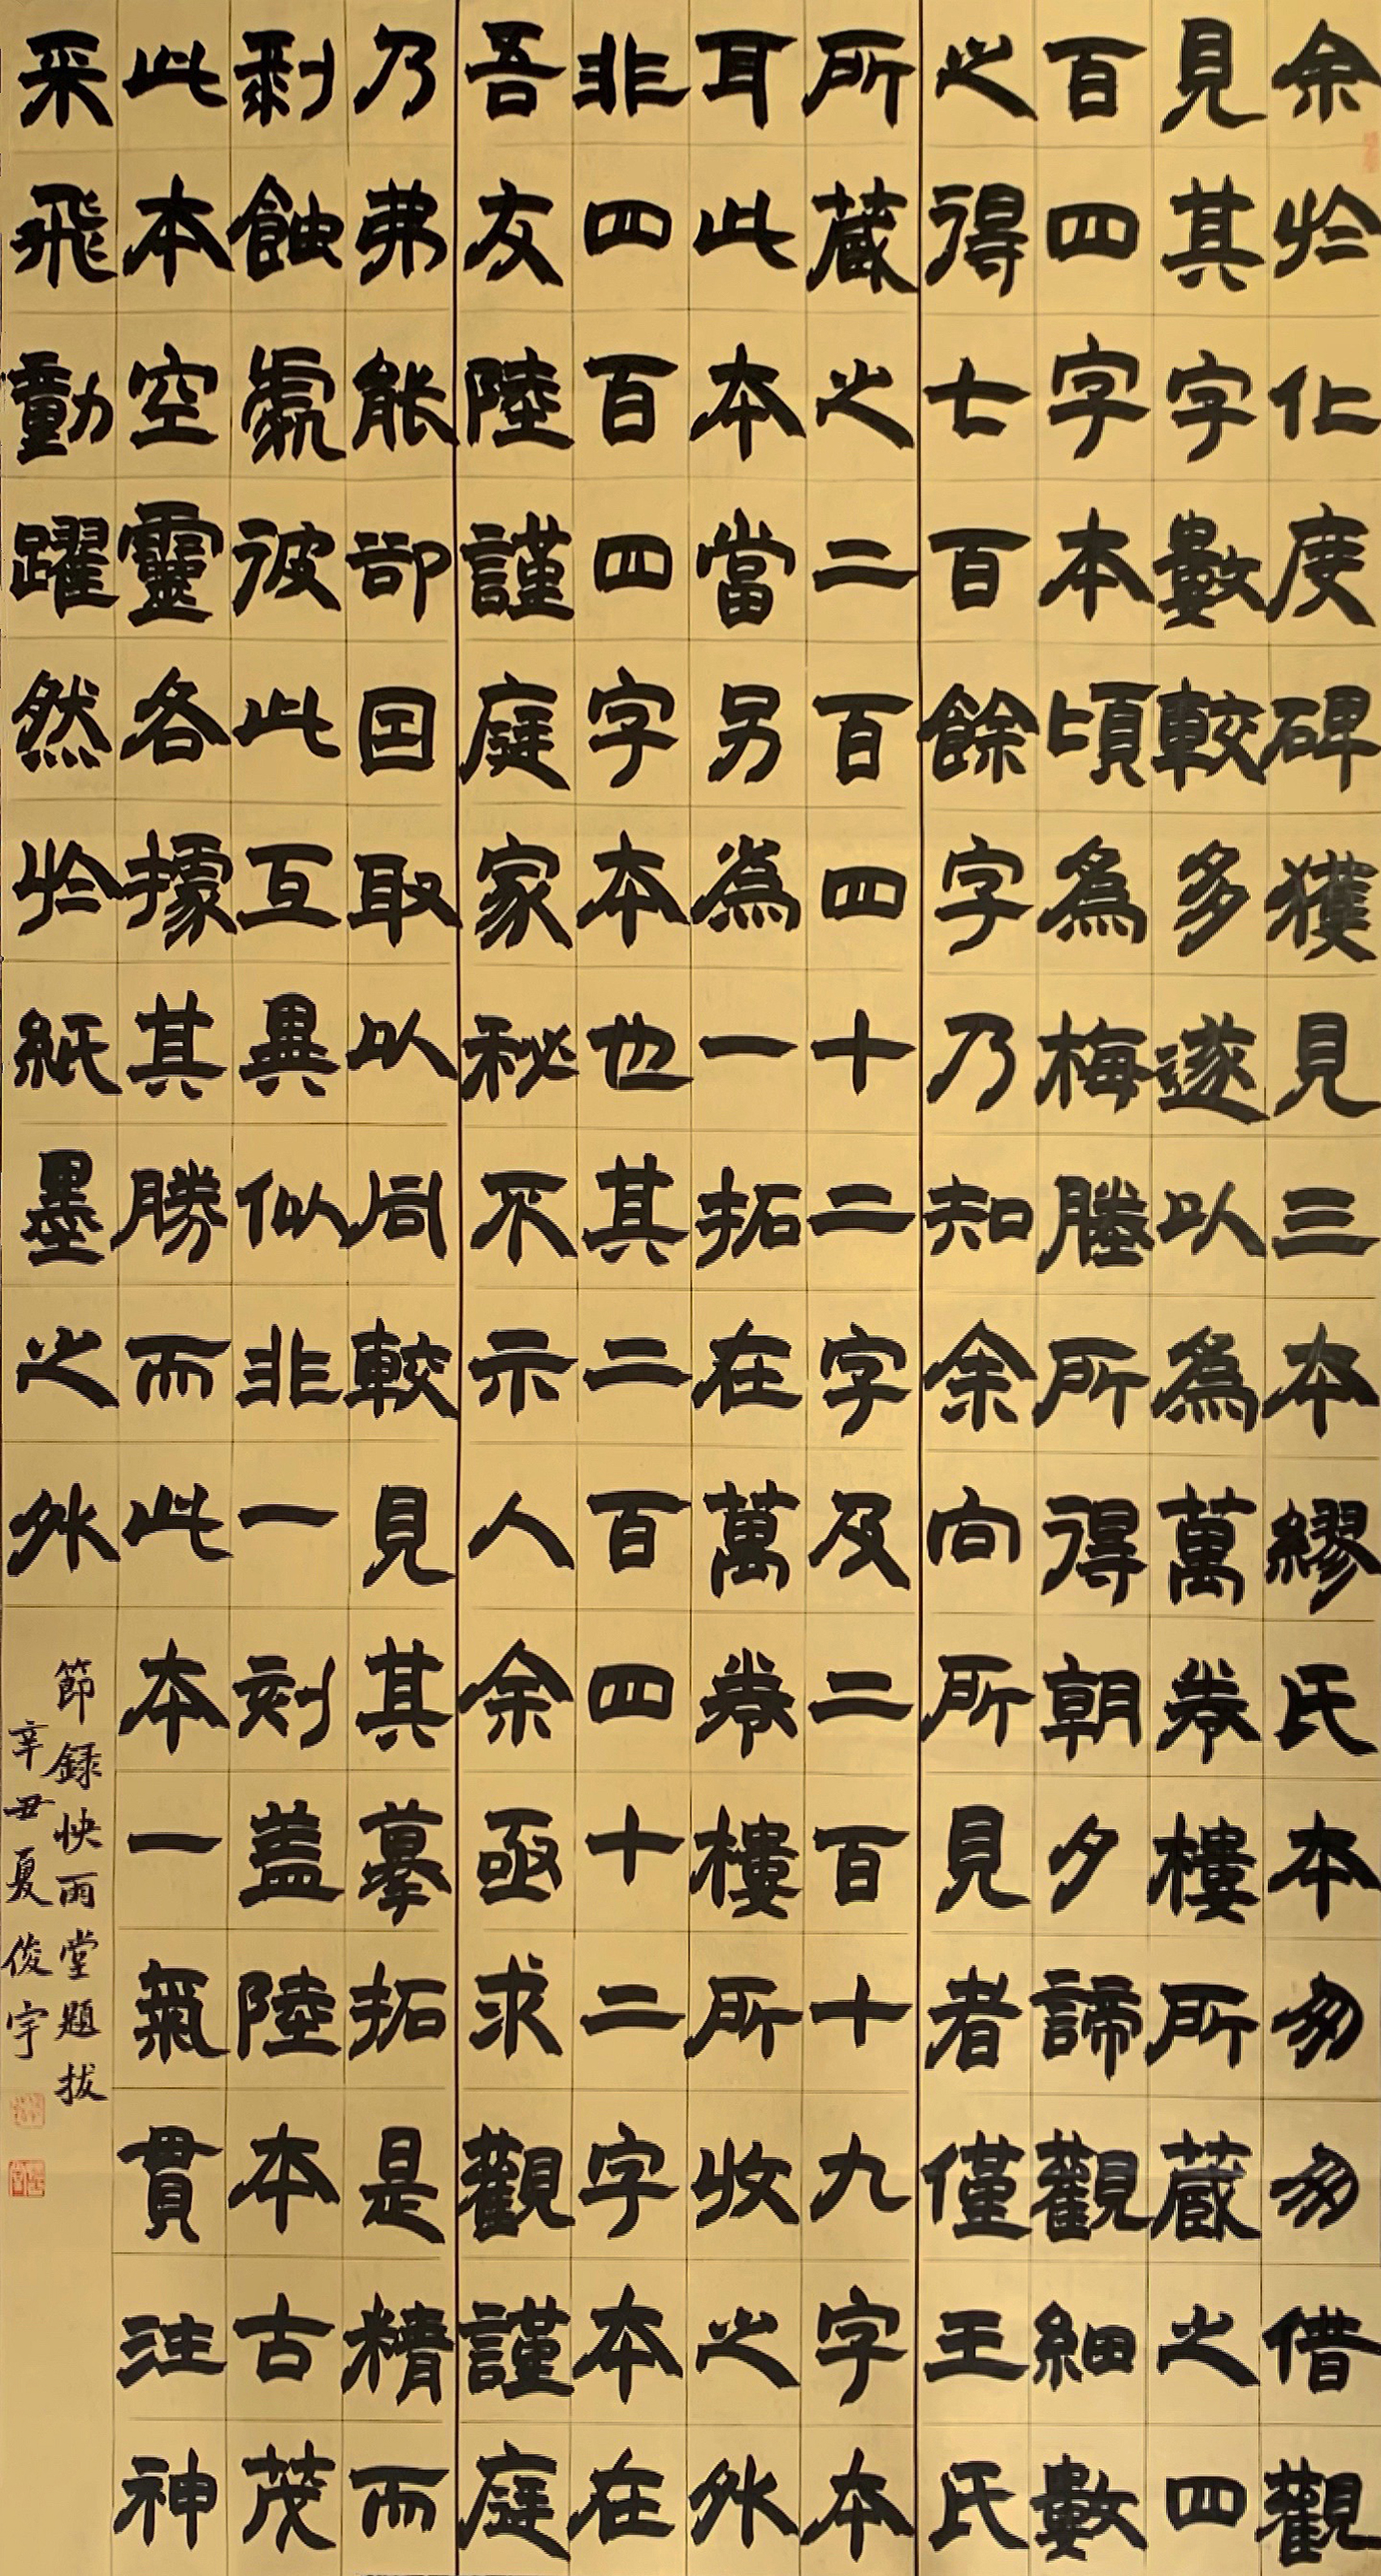 余於化度碑獲見三本繆氏本匆匆借觀
見其字數較多遂以為萬卷樓所藏之四
百四字本頃為梅塍所得朝夕諦觀細數
之得七百餘字乃知余向所見者僅王氏
所藏之二百四十二字及二百十九字本
耳此本當另為一拓在萬卷樓所收之外
非四百四字本也其二百四十二字本在
吾友陸謹庭家秘不示人余亟求觀謹庭
乃弗能卻因取以同較見其摹拓是精而
剥蝕處彼此互異似非一刻蓋陸本古茂
此本空靈各據其勝而此本一氣貫注神
采飛動躍然於紙墨之外
節錄快雨堂題拔
辛丑夏俊宇